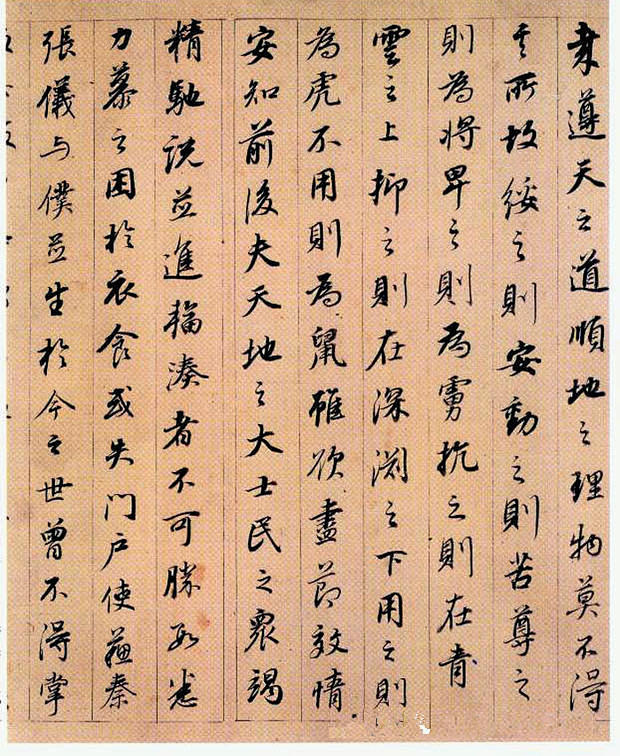 遵天之道順地之理物莫不得
其所故綏之則安動之則苦尊之
則為將卑之則為虜抗之則在青
雲之上抑之則在深淵之下用之則
為虎不用則為鼠雖欲盡節效情
安知前後夫天地之大士民之衆竭
精馳説並進輻湊者不可勝數悉
力慕之困於衣食或失門户使蘇秦
張儀与僕並生於今之世曾不得掌